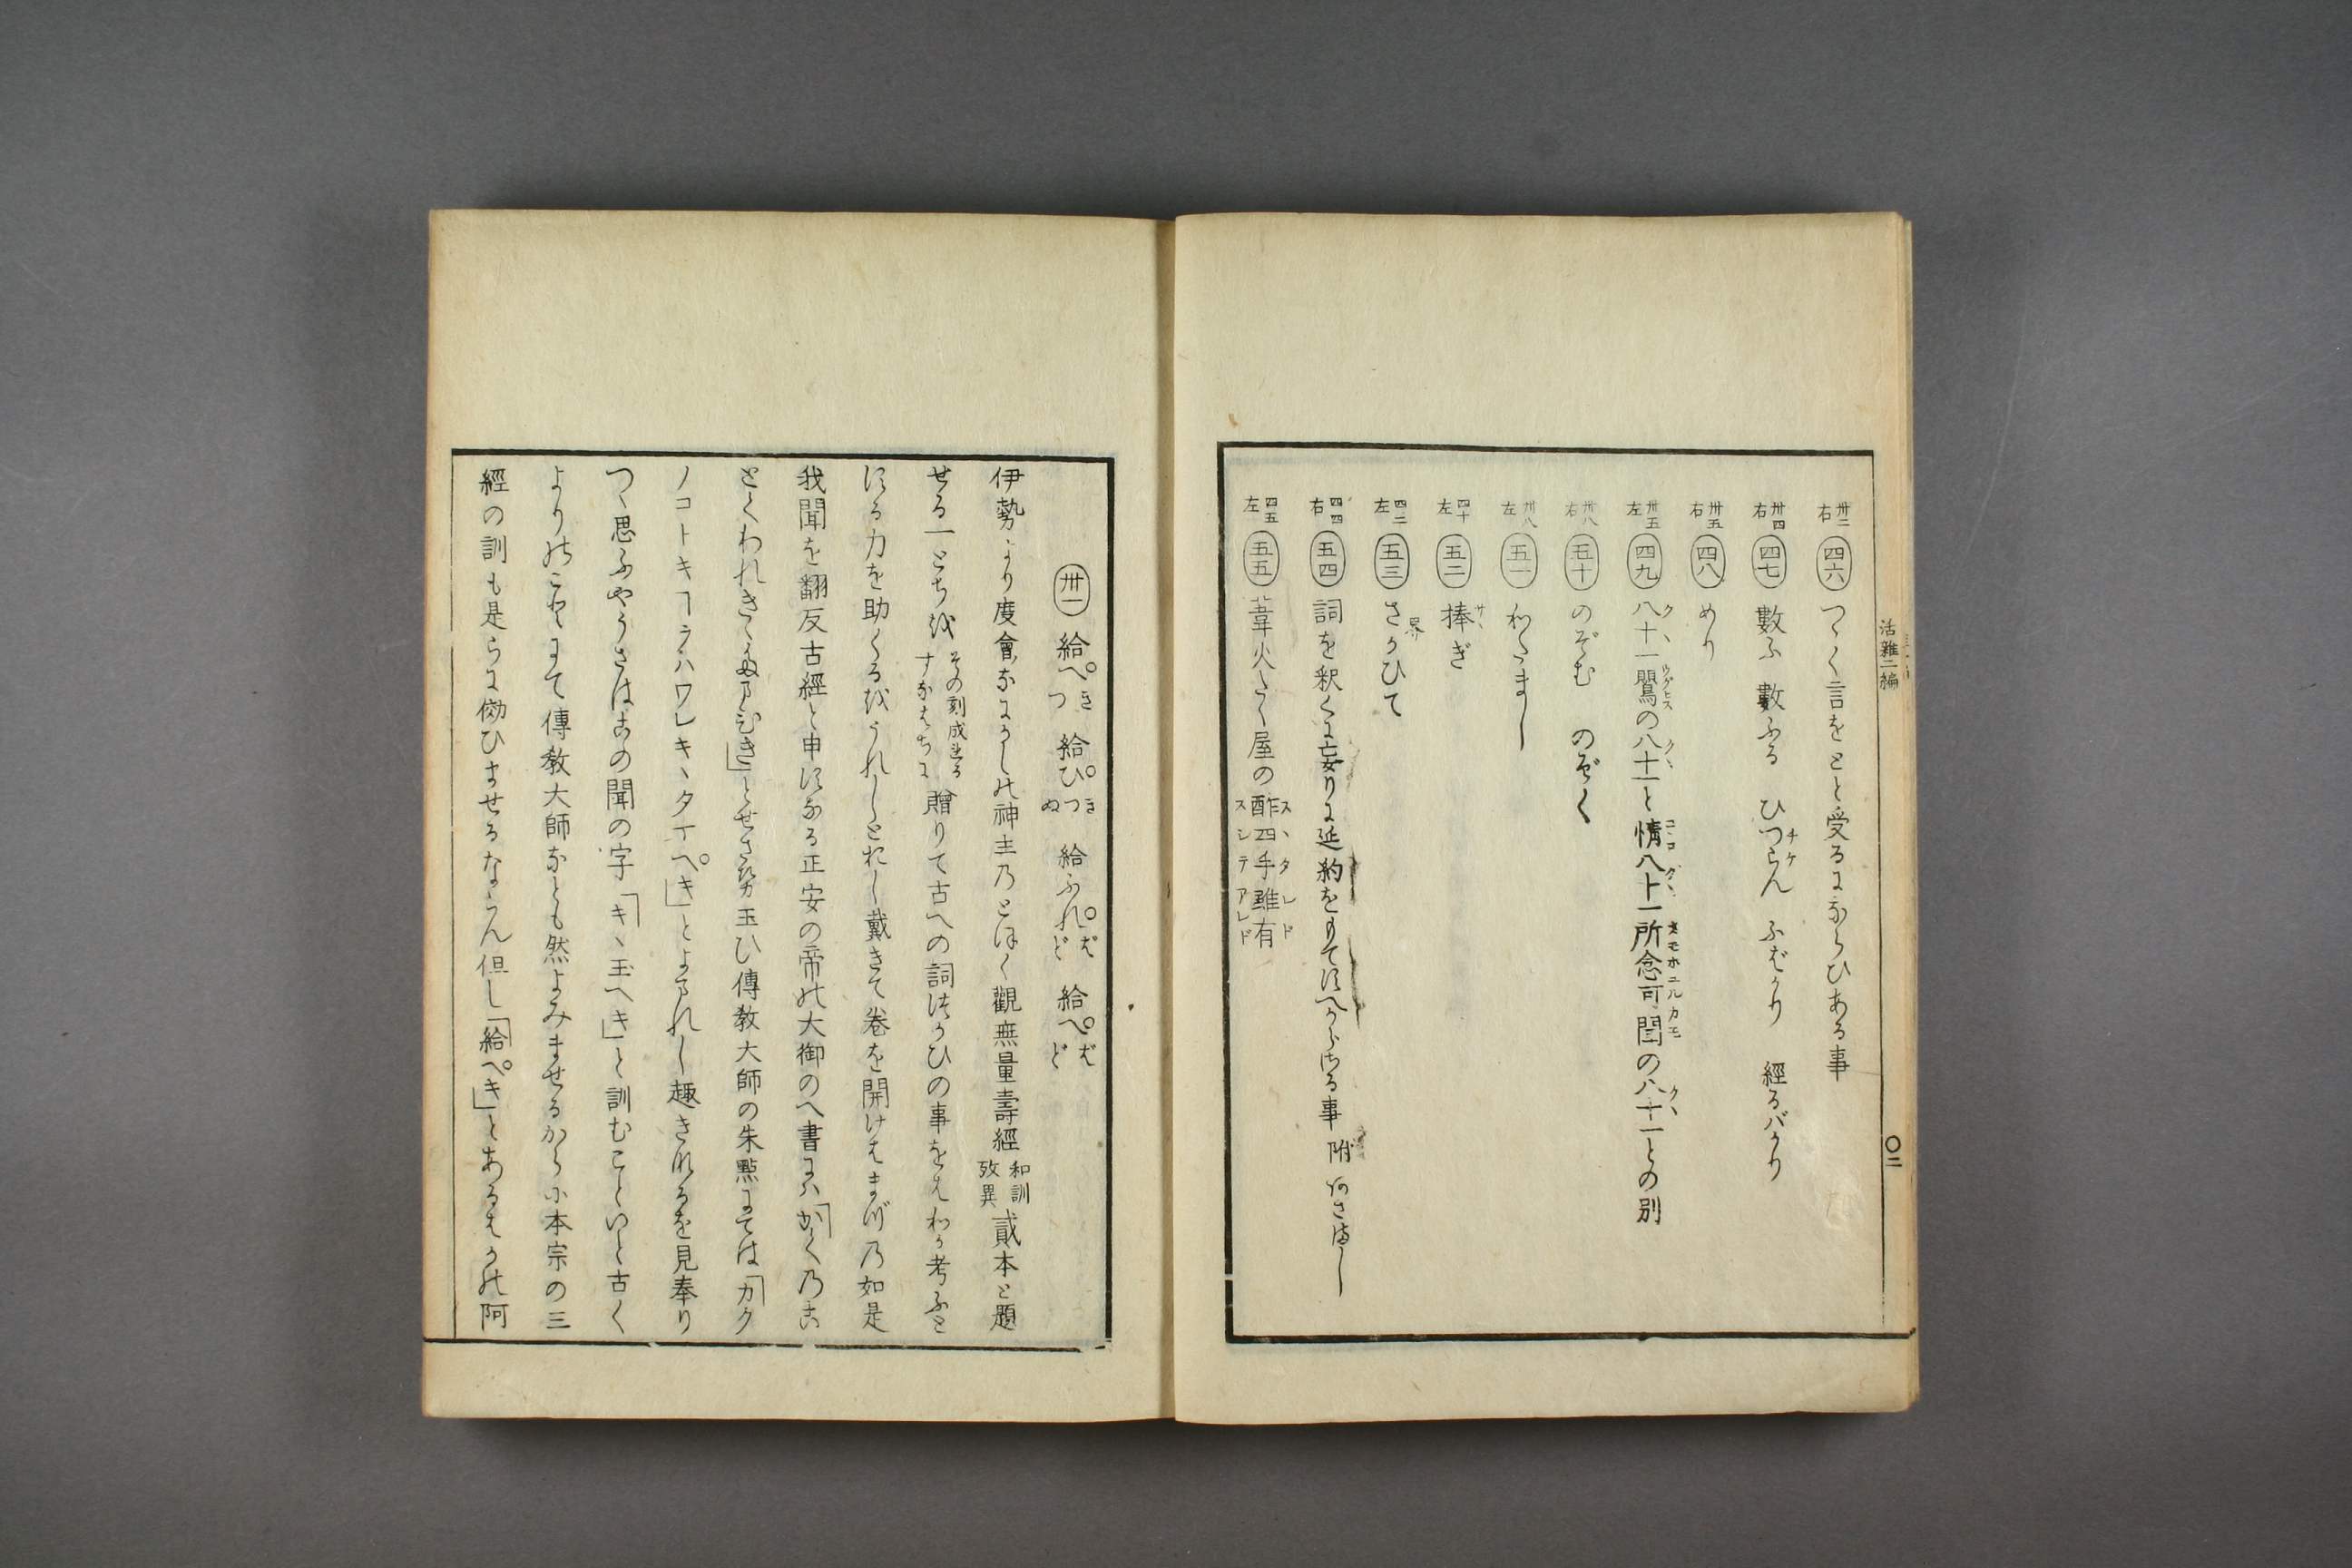 活雜二編
〇二
卅二右 四六 つゝく言をとと受るにならひある事
卅四右 四七 數ふ 數ふる ひつらん ふばかり 經るバかり
卅五右 四八 めり
卅五左 四九 八十一鶯の八十一と情八十一所念可聞の八十一との別
卅八右 五十 のぞむ のぞく
卅八左 五一 わたまし
四十左 五二 捧ぎ
四二左 五三 さかひて
四四右 五四 詞を釈くに妄りに延約をもてすへからさる事 附 あさましし
四五左 五五 葦火たく屋の酢四手雖有
卅一 給ぺきつ 給ぴきつぬ 給ふればど 給ぺばど
伊勢より度會なにかしの神主乃とほく觀無量壽經和訓攷異貳本と題
せる一とちを その刻成れるすなはちに 贈りて古への詞つかひの事をもわか考ふと
する力を助くるをうれしとおし戴きて卷を開けはまづ乃如是
我聞を翻反古經と申すなる正安の帝の大御のへ書には「かくの
とくわれきゝたまひき」とせさせ玉ひ傳教大師の朱點にては「カク
ノコトキヿヲハワレキヽタテぺキ」とよまれし趣きなるを見奉り
つゝ思ふやうさは此の聞の字「キヽ玉ヘキ」と訓むこといと古く
よりのことにて傳教大師なとも然よみませるから小本宗の三
經の訓も是らに傚ひませるならん但し「給ぺキ」とあるはかの阿